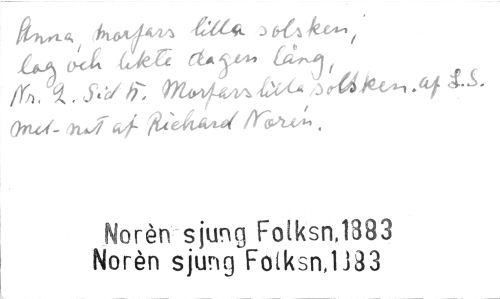 Anna, morfars lilla solsken,
låg och lekte dagen lång,
Nr. 2. Sid 5. Morfars lilla solsken. af L.S.
mel- not af Richard Norén.
Norèn sjung Folksn,1883
Norèn sjung Folksn,1883